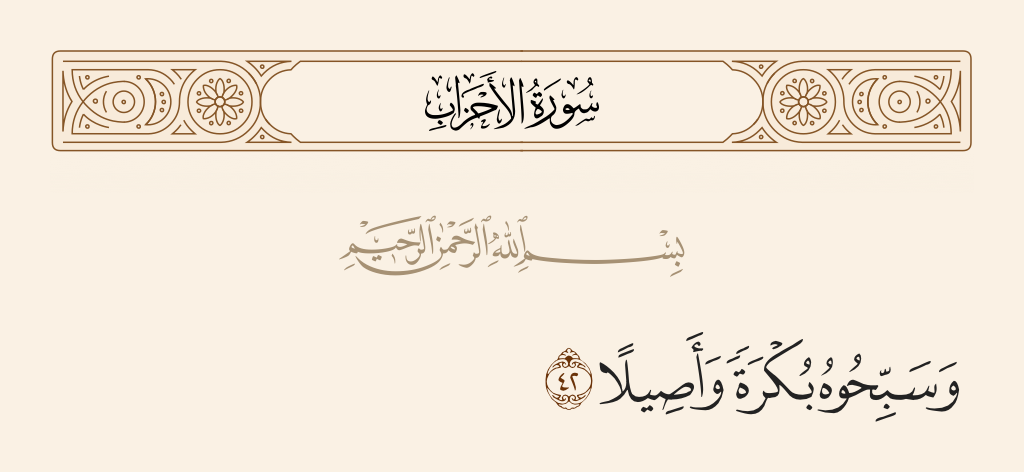 سُورَةُ الأَحْزَابِ
بِسْمِ ٱللَّهِ ٱلرَّحْمَٰنِ ٱلرَّحِيمِ
وَسَبِّحُوهُ بُكْرَةً وَأَصِيلًا ٤٢